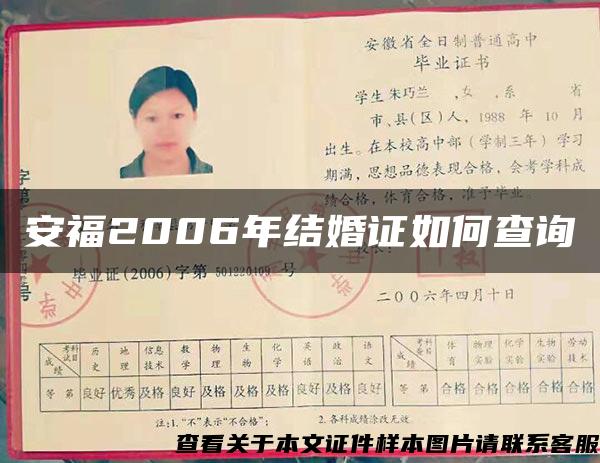 安徽省全日制普通高中
毕业证书
学生 朱巧兰 ,女 ,系 省
市、县(区)人, 1988 年 10 月
出生。在本校高中部(学制三年)学习
期满,思想品德表现合格,会考学科成
绩合格,体育合格,准予毕业。
安福2006年结婚证如何查询
毕业证(2006)字第 501220109 号
二00六年四月十日
考科 试目 成绩 历史 地理 信息技术 数学 物理 生物 化学 英语 政治 语文
等第 良好 优秀 及格 及格 及格 及格 及格 良好 及格 良好
考科 查目 成绩 体育 物理实验 化学实验 生物实验 劳动技术
等第 合格 合格 合格 合格 合格
注:1."不"表示"不合格"; 2.各科成绩涂改无效
查看关于本文证件样本图片请联系客服